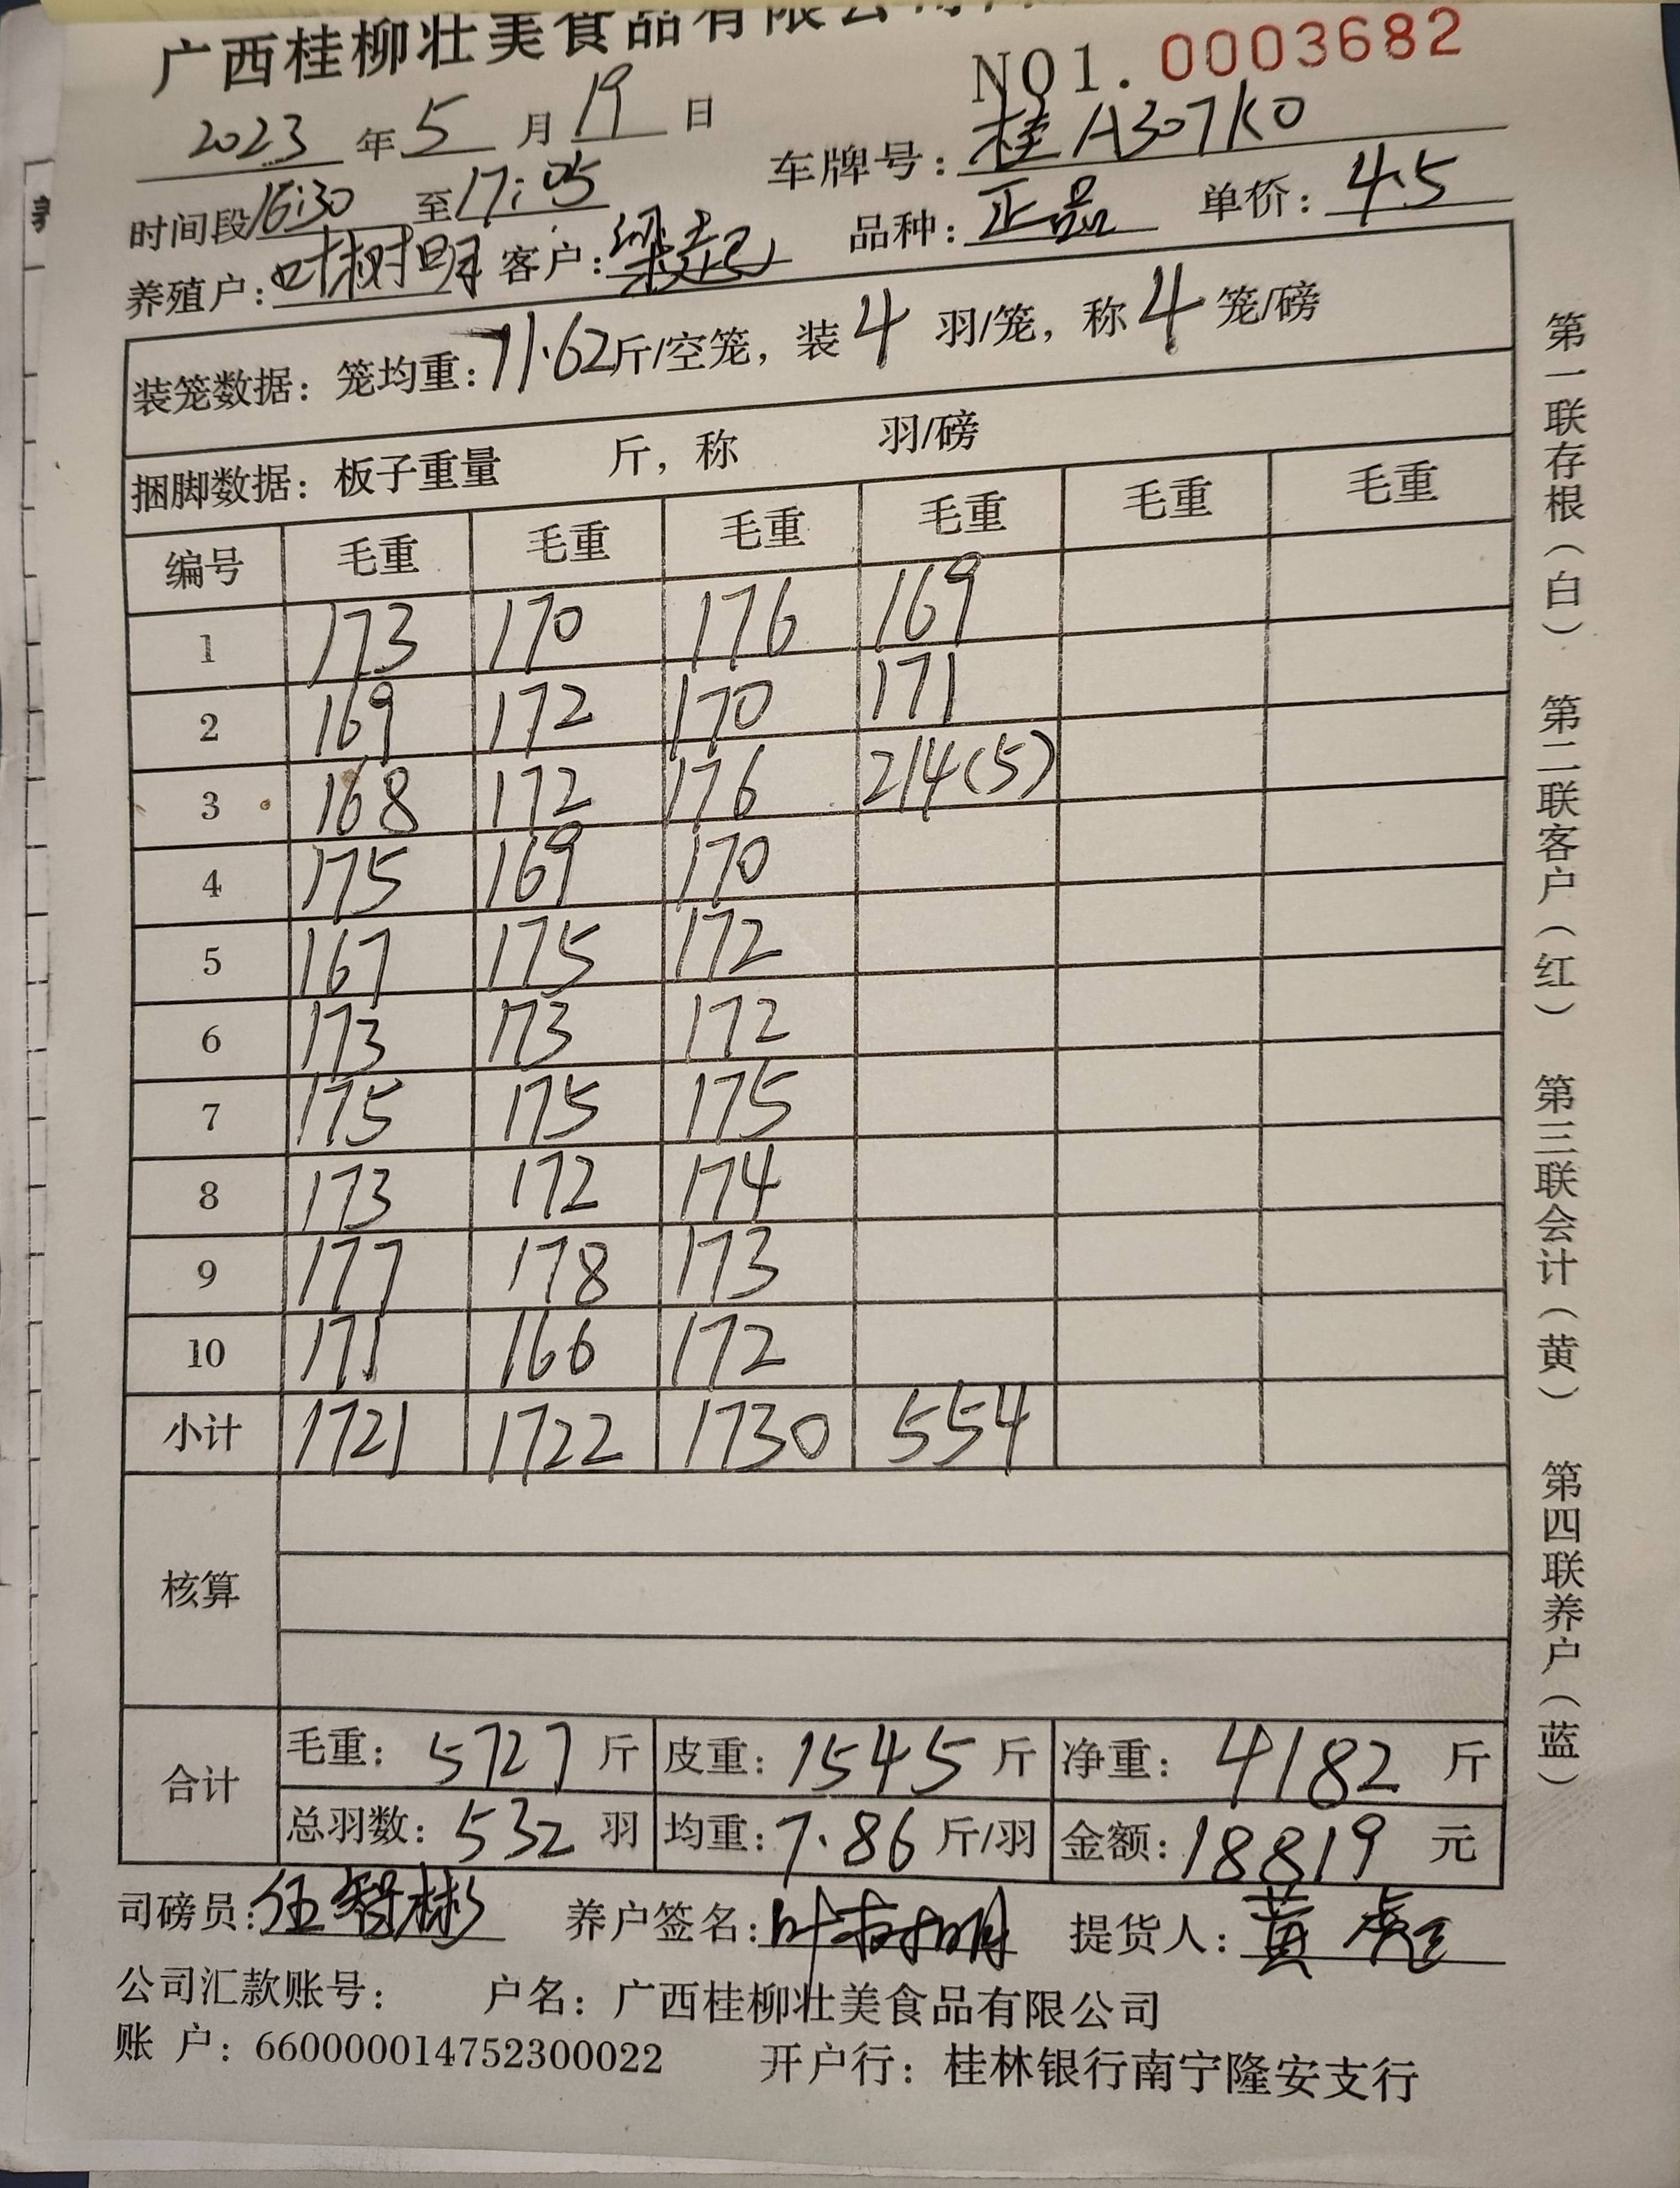 广西桂柳壮美食品有限公司
NO1. 0003682
2023年5月19日 车牌号：桂A307K0
时间段16:30至17:05 品种：正品 单价：4.5
养殖户：叶树明 客户：梁起
装笼数据：笼均重：11.62斤/空笼，装4羽/笼，称4笼/磅
捆脚数据：板子重量 斤，称 羽/磅
编号 毛重 毛重 毛重 毛重 毛重 毛重
1 173 170 176 169
2 169 172 170 171
3 168 172 176 214(5)
4 175 169 170
5 167 175 172
6 173 173 172
7 175 175 175
8 173 172 174
9 177 178 173
10 171 166 172
小计 1721 1722 1730 554
核算
合计 毛重：5727斤 皮重：1545斤 净重：4182斤
总羽数：532羽 均重：7.86斤/羽 金额：18819元
司磅员：伍智彬 养户签名：叶树明 提货人：黄
公司汇款账号： 户名：广西桂柳壮美食品有限公司
账 户：660000014752300022 开户行：桂林银行南宁隆安支行
第一联存根（白） 第二联客户（红） 第三联会计（黄） 第四联养户（蓝）